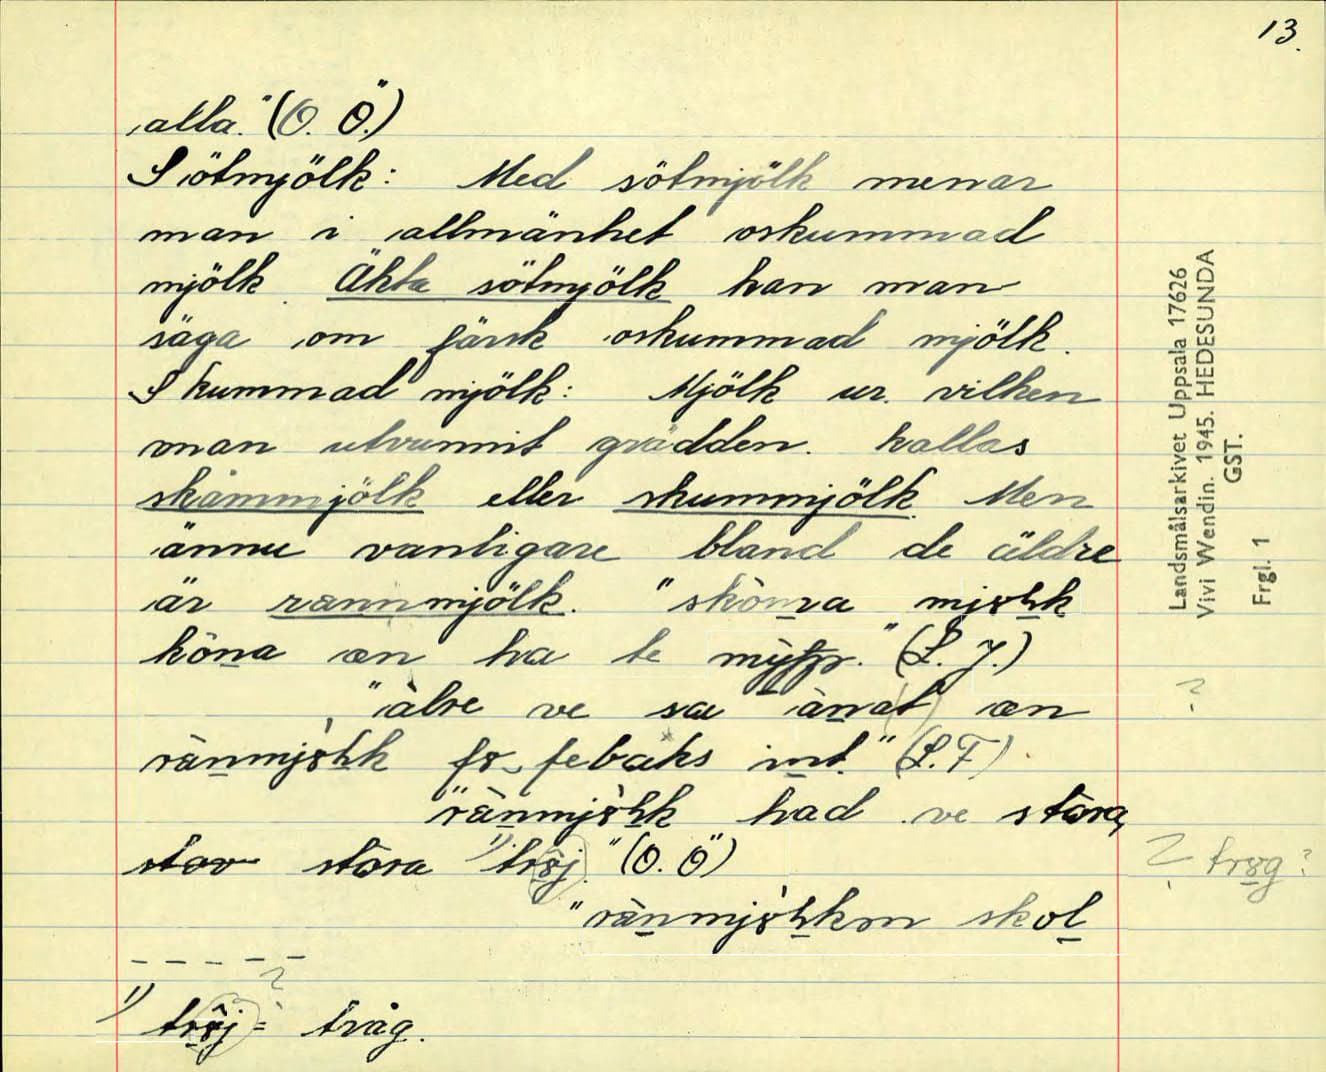 13.
alla." (O. Ö.)
Sötmjölk: Med sötmjölk menar
man i allmänhet oskummad
mjölk. Äkta sötmjölk kan man
säga om färsk oskummad mjölk.
Skummad mjölk: Mjölk ur vilken
man utvunnit grädden kallas
skåmmjölk eller skummjölk. Men
ännu vanligare bland de äldre
är rännmjölk. "skòma mjøhk
kòna æn ha te (L. J.)
"àlre ve sa ànat æn
rànmjøhk fø febaks int." (L. F)
"rànmjøhk had ve stòra,
stor stòra 1) trøj." (O. Ö)
"rànmjøhkm skol
1) trøj = tråg.
? trøg?
Landsmålsarkivet Uppsala 17626
Vivi Wendin. 1945. HEDESUNDA
GST.
Frgl. 1